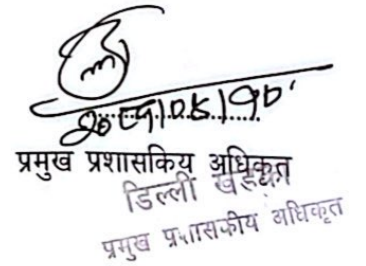 प्रमुख प्रशासकिय अधिकृत
डिल्ली खड्का
प्रमुख प्रशासकीय अधिकृत